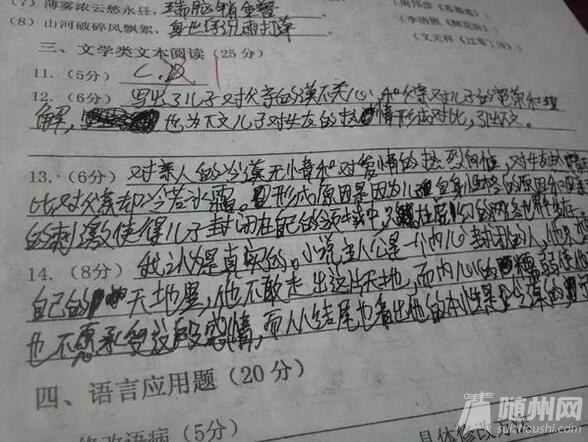 (7) 薄雾浓云愁永昼，瑞脑销金兽
(8) 山河破碎风飘絮，身世浮沉雨打萍
(文天祥《过零丁洋》)
三、文学类文本阅读（25分）
11.（5分） C. D
12.（6分） 写出了儿子对父亲的漠不关心，和父亲对儿子的宽容和理
解，也为下文儿子对女友的热情形成对比，引出下文。
13.（6分）对亲人的冷漠无情和对爱情的热烈向往，对女友热情
比对父亲却冷若冰霜。形成原因是因为儿自身性格的原因和
的刺激使得儿子封闭在自己的领域中
14.（8分）我认为是真实的。小说主人公是一个内心封闭的人，他
自己的天地里，他不敢走出这片天地，而内心的
也不愿承受这段感情，而从结尾也看出他的本性是冷漠的
四、语言应用题（20分）
修改语病（5分）
随州网
suizhoushi.com